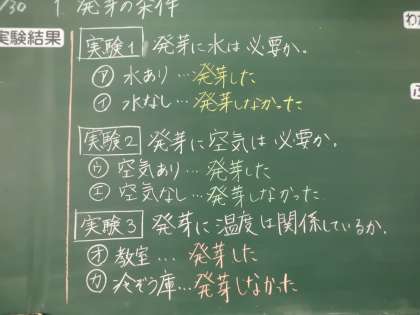 /30 1. 発芽の条件
実験結果
実験1 発芽に水は必要か。
ア 水あり…発芽した
イ 水なし…発芽しなかった
実験2 発芽に空気は必要か。
ウ 空気あり…発芽した
エ 空気なし…発芽しなかった
実験3 発芽に温度は関係しているか。
オ 教室…発芽した
カ 冷ぞう庫…発芽しなかった
わ